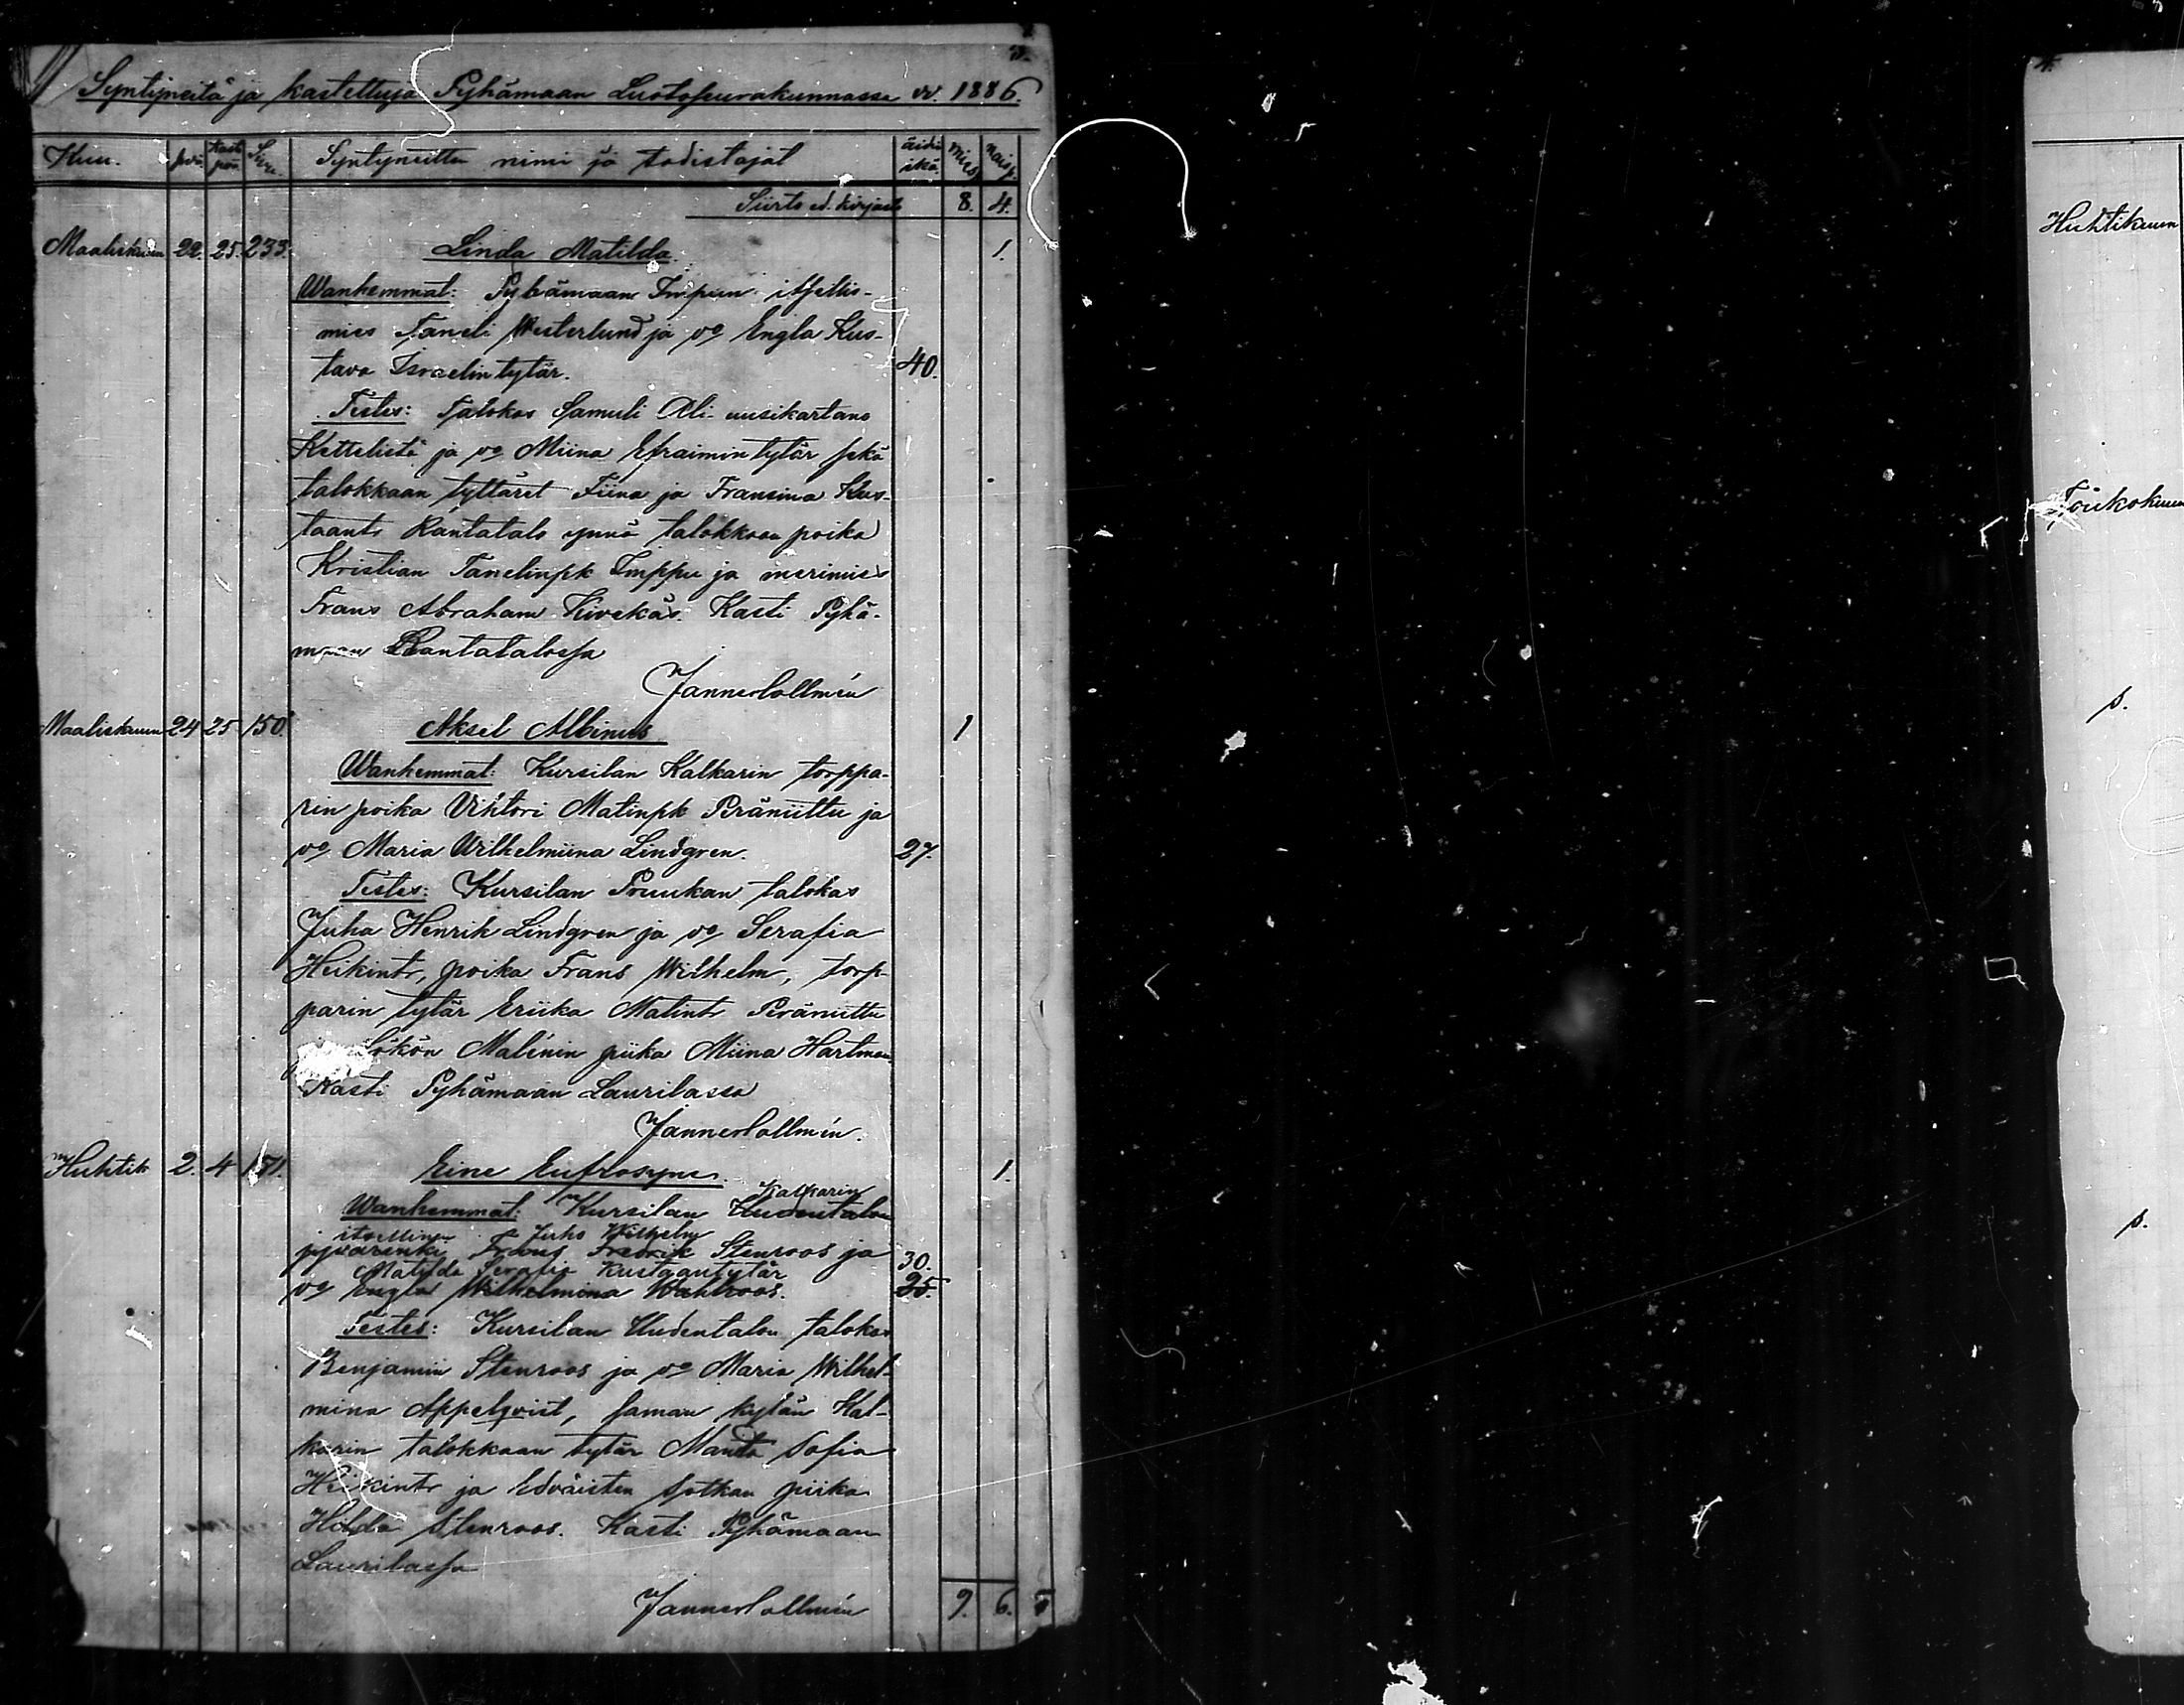 3.
Syntyneitä ja kastettuja Pyhämaan Luotoseurakunnassa vv. 1886.
Kuu. päivä Kaste pvä Siv. Syntyneitten nimi ja todistajat äidin ikä miesp. naisp.
Siirto ed. kirjasta 8. 4.
Maaliskuun 22. 25. 233. Linda Matilda. 1.
Wanhemmat: Pyhämaan Impun itsellis-
mies Taneli Westerlund ja vo Engla Kus-
tava Israelintytär. 40.
Testes: Talokas Samuli Ali-uusikartano
Kettelistä ja vo Miina Efraimintytär sekä
talokkaan tyttäret Fiina ja Fransina Kus-
taantr Rantatalo ynnä talokkaan poika
Kristian Tanelinpk Imppu ja merimies
Frans Abraham Kivekäs. Kasti Pyhä-
maan Rantatalossa
Janne Collmén
Maaliskuun 24 25 150. Aksel Albinus 1
Wanhemmat: Kursilan Kalkarin torppa-
rin poika Vihtori Matinpk Peräniittu ja
vo Maria Wilhelmiina Lindgren. 27.
Testes: Kursilan Pruukan talokas
Juha Henrik Lindgren ja vo Serafia
Heikintr, poika Frans Wilhelm, torp-
parin tytär Eriika Matintr Peräniittu
Lökön Malénin piika Miina Hartman
Kasti Pyhämaan Laurilassa
Janne Collmén.
Huhtik 2. 4 151. Eine Eufrosyne. 1.
Kalkarin
Wanhemmat: Kursilan Uudentalon
itsellinen Juho Wilhelm
pyvärenki Frans Fredrik Stenroos ja 30.
Matilda Serafia Kustaantytär
vo Engla Wilhelmina Wahlroos. 25.
Testes: Kursilan Uudentalon talokas
Benjamin Stenroos ja vo Maria Wilhel-
mina Appelqvist, saman kylän Kal-
karin talokkaan tytär Manta Sofia
Heikintr ja Edväisten Sotkan piika
Hilda Stenroos. Kasti Pyhämaan
Laurilassa
Janne Collmén 9. 6. 5
4.
Huhtikuun
Toukokuun
s.
s.